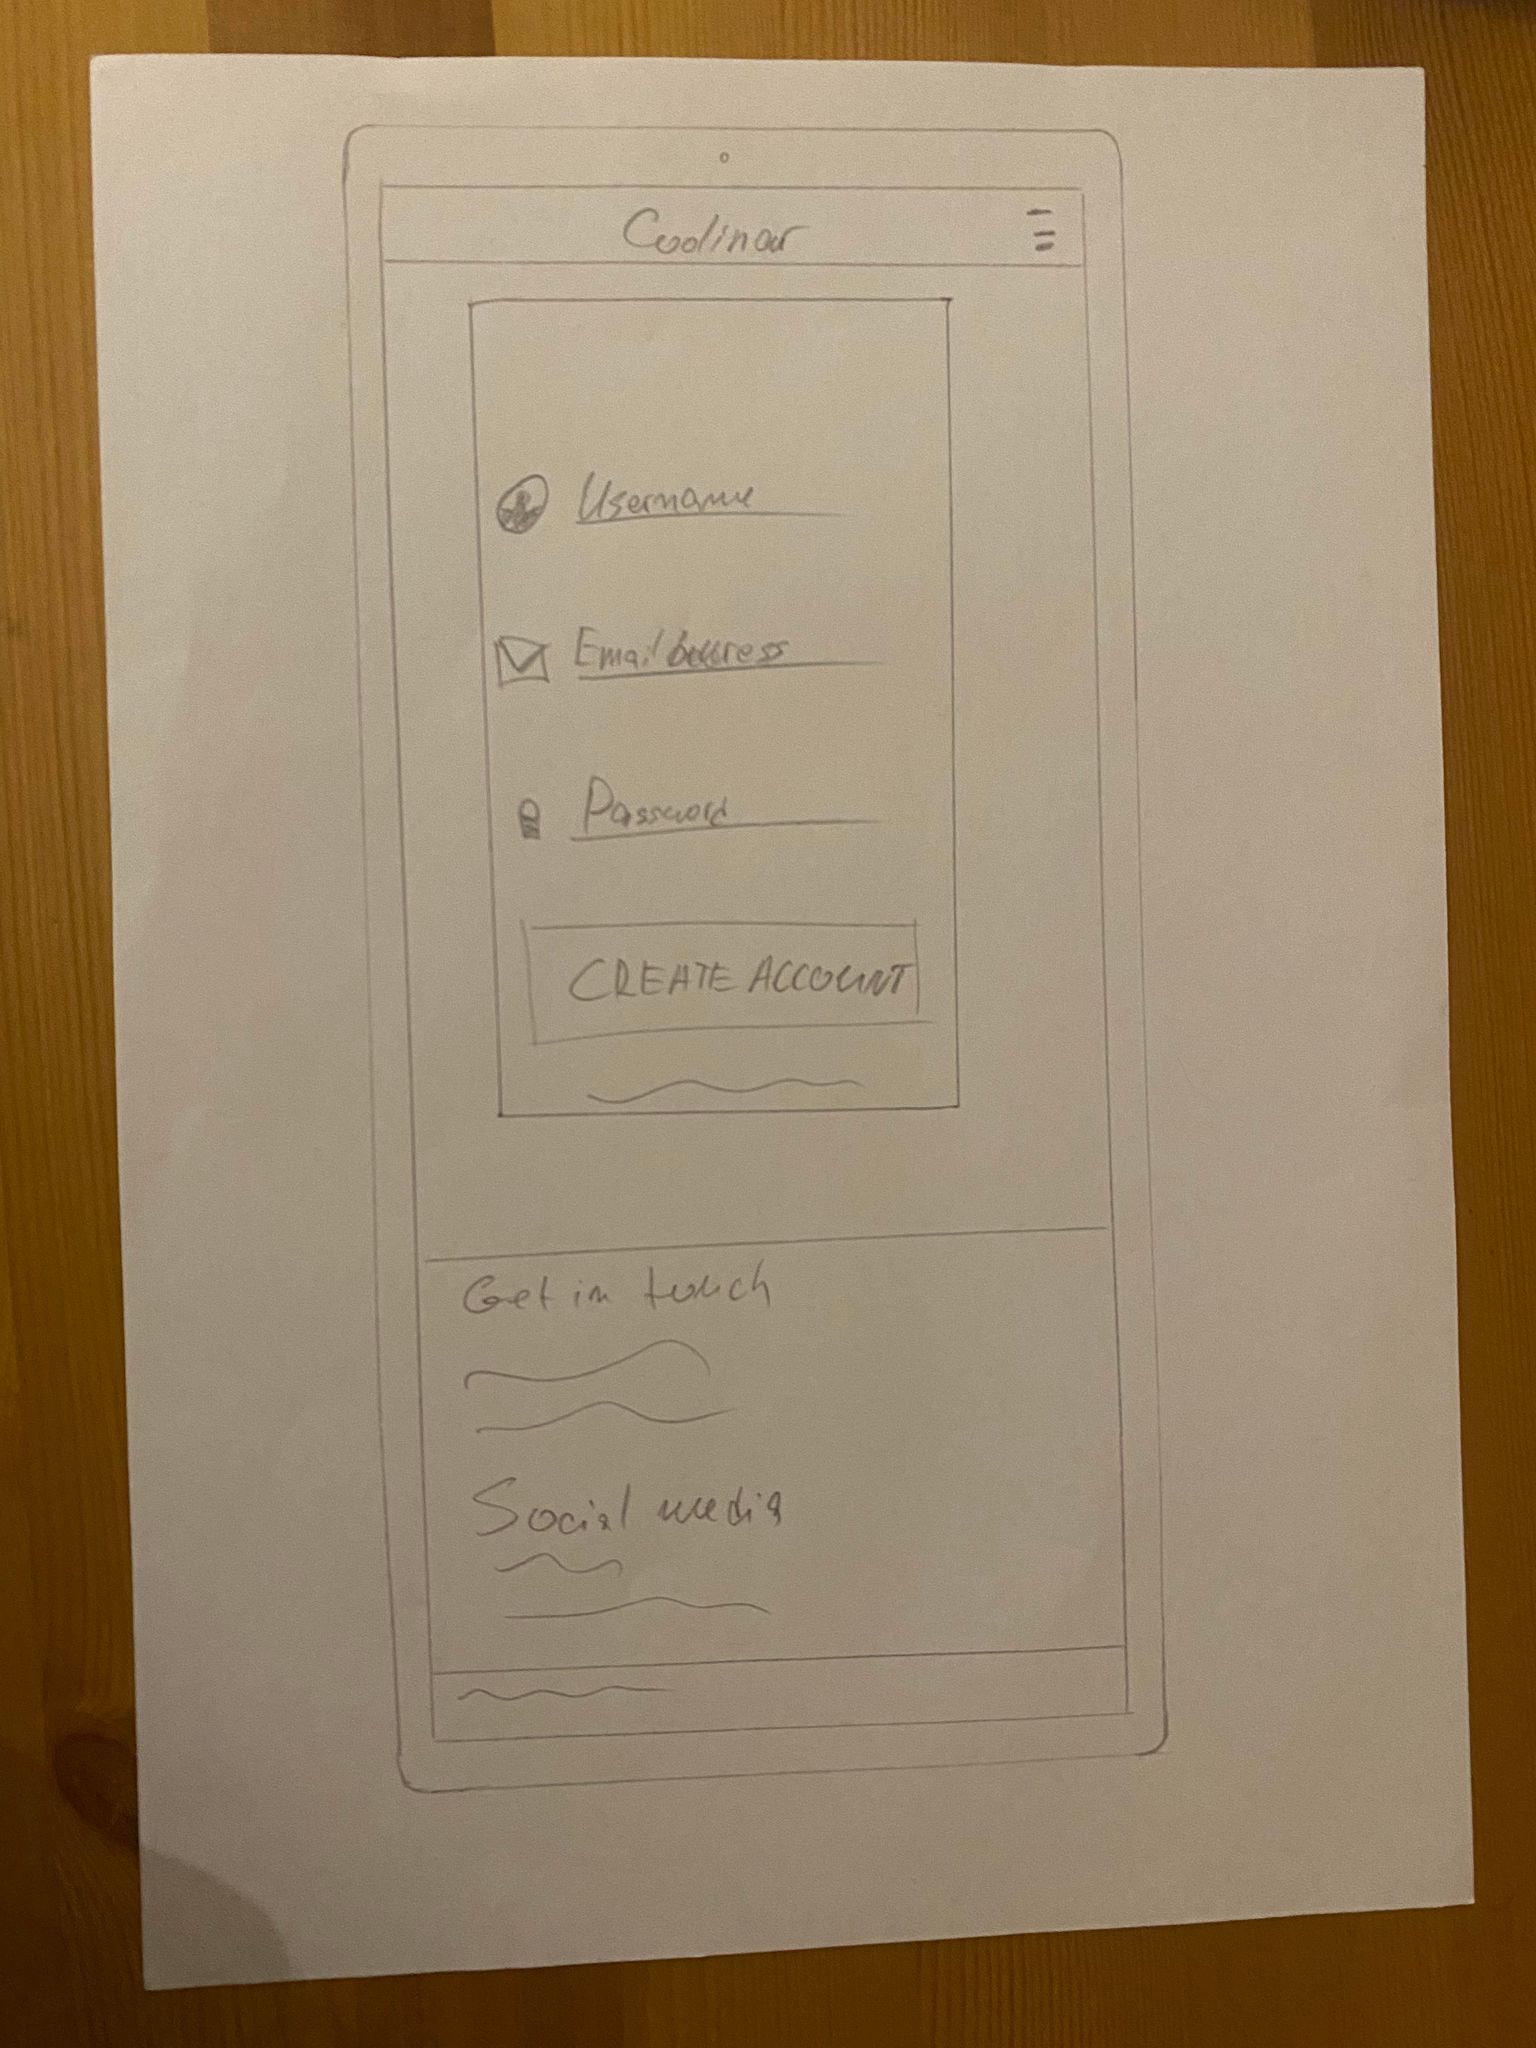 Coolinar
Username
Email address
Password
CREATE ACCOUNT
Get in touch
Social media